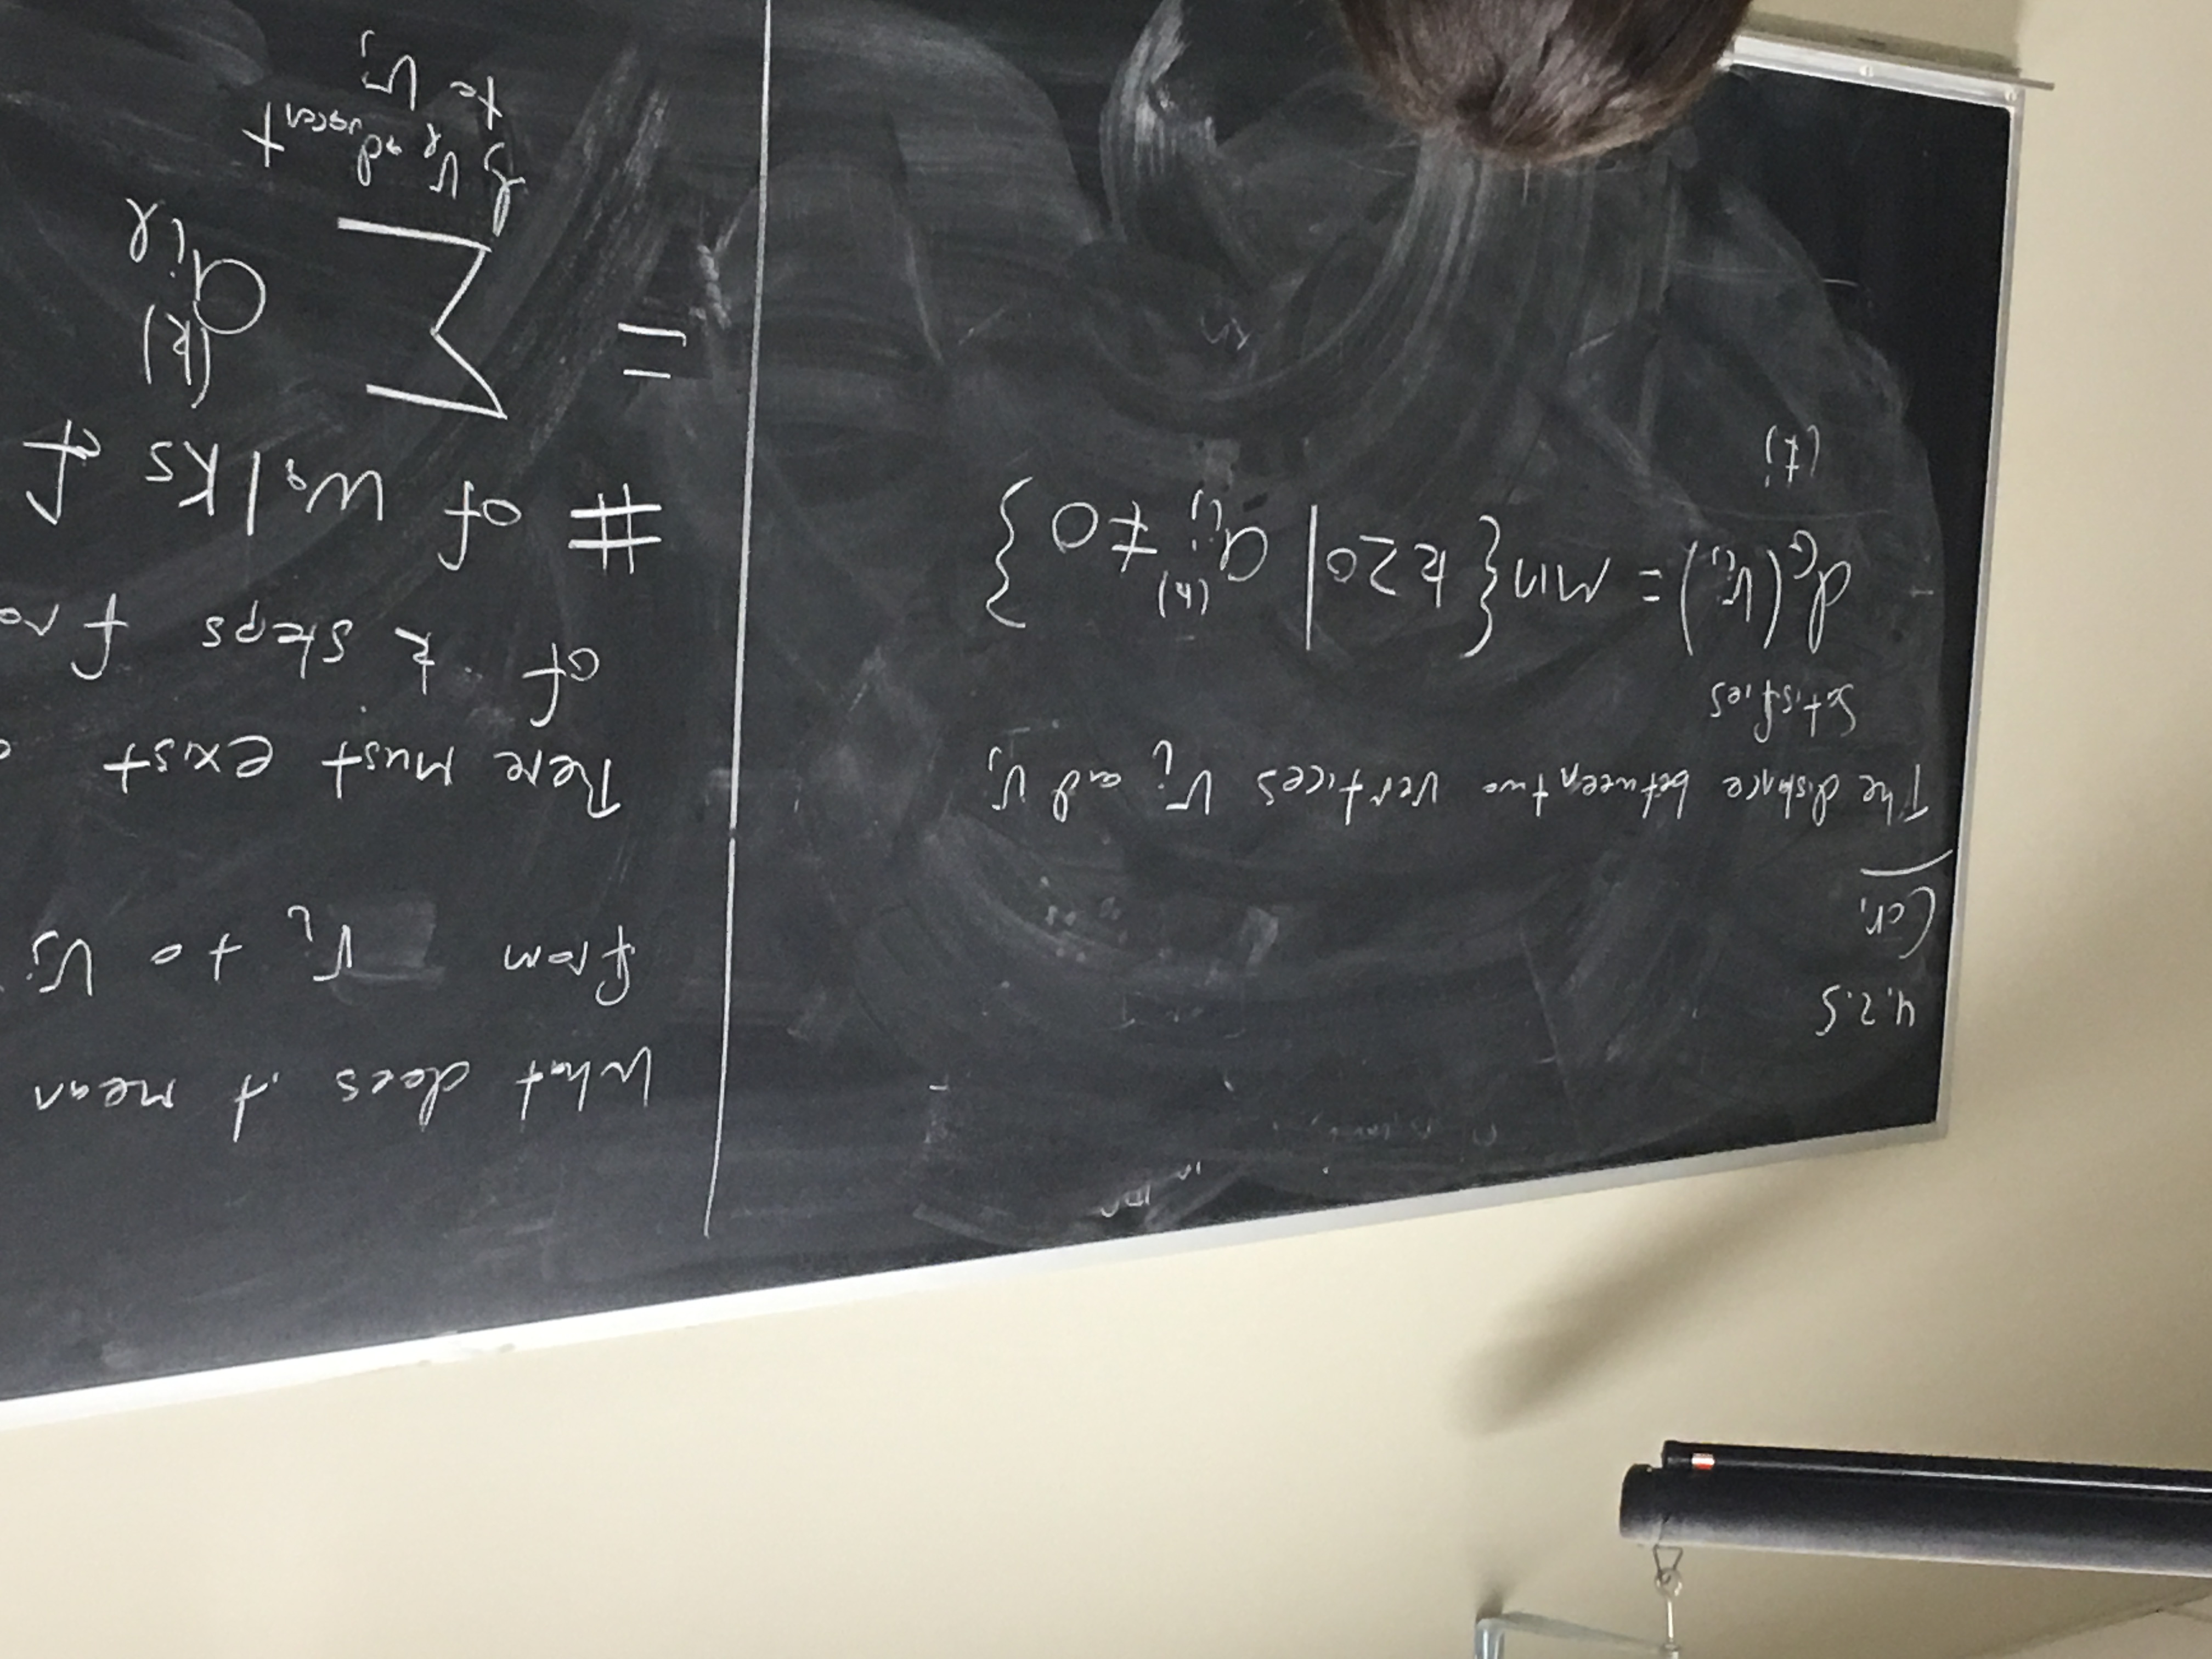 4.2.5
Cor.
The distance between two vertices v_i and v_j
Satisfies
d_G(v_i, ) = min{ k ≥ 0 | a_ij^(k) ≠ 0 }
What does it mean
from v_i to v_j
There must exist
of k steps fro
# of walks f
= ∑ a_iℓ^(k)
ℓ, v_ℓ adjacent
to v_j